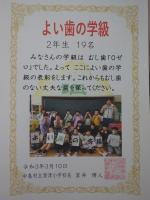 よい歯の学級
2年生 19名
みなさんの学級は むし歯「0ゼ
ロ」でした。よって ここによい歯の学
級の表彰をします。これからもむし歯
のない丈夫な歯を保ってください。
よい歯の学級
令和3年3月10日